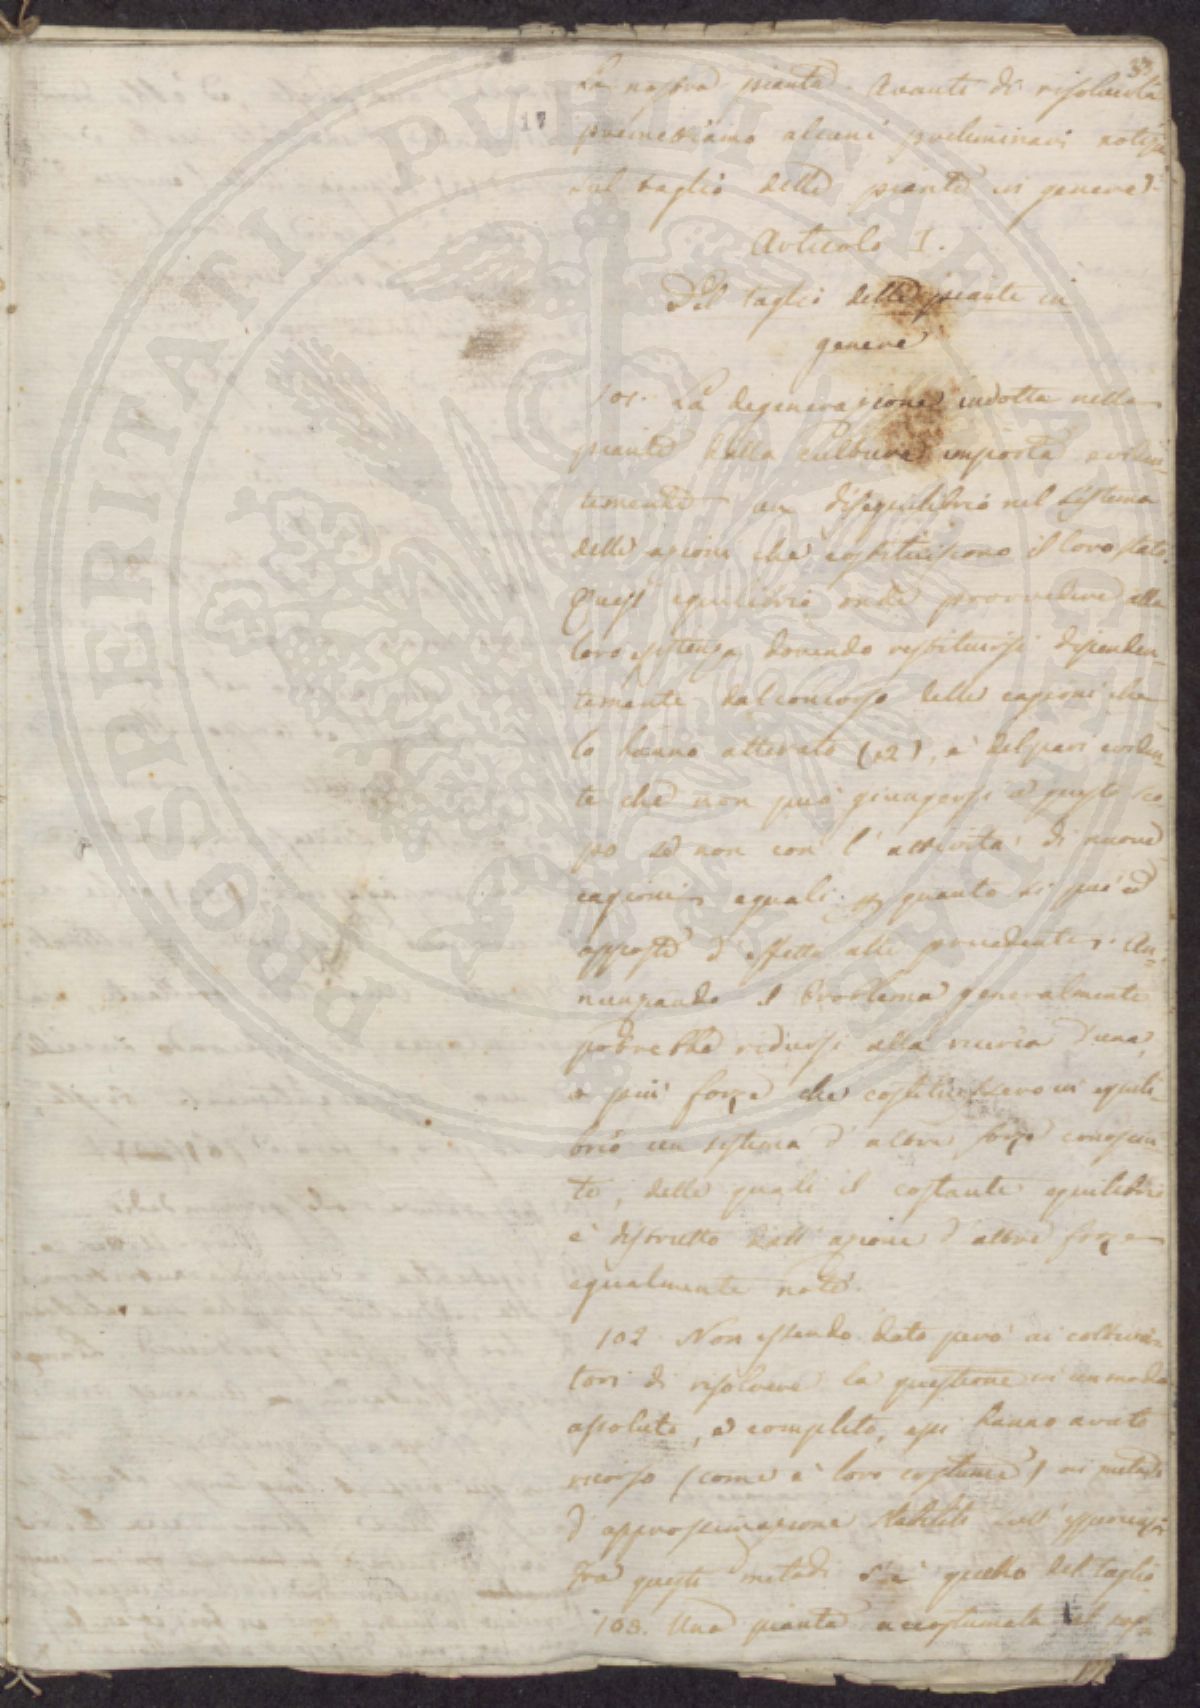 33
17
la nostra pianta. Avanti di risolverla
premettiamo alcuni preliminari notizie
sul taglio delle piante in genere.
Articolo I.
Del taglio delle piante in
genere
101. La degenerazione indotta nelle
piante dalla cultura importa eviden-
temente un disequilibrio nel sistema
delle azioni che costituiscono il loro stato.
Quest' equilibrio onde provvedere alla
loro esistenza dovendo restituirsi dipenden-
temente dal concorso delle cagioni che
lo hanno alterato (92), è del pari eviden-
te che non può giungersi a questo sco-
po se non con l' attività di nuove
cagioni eguali quanto si può ed
opposte d' effetto alle precedenti.
il problema generalmente
potrebbe ridursi alla ricerca d' una,
o più forze che costituissero in equili-
brio un sistema d' altre forze conosciu-
te, delle quali il costante equilibrio
è distrutto dall' azione d' altre forze
egualmente note.
102. Non essendo dato però ai coltiva-
tori di risolvere la questione in un modo
assoluto, e completo, essi hanno avuto
ricorso (come è loro costume) ai metodi
d' approssimazione stabiliti sull' esperienza
Fra questi metodi v' è quello del taglio
103. Una pianta accostumata al